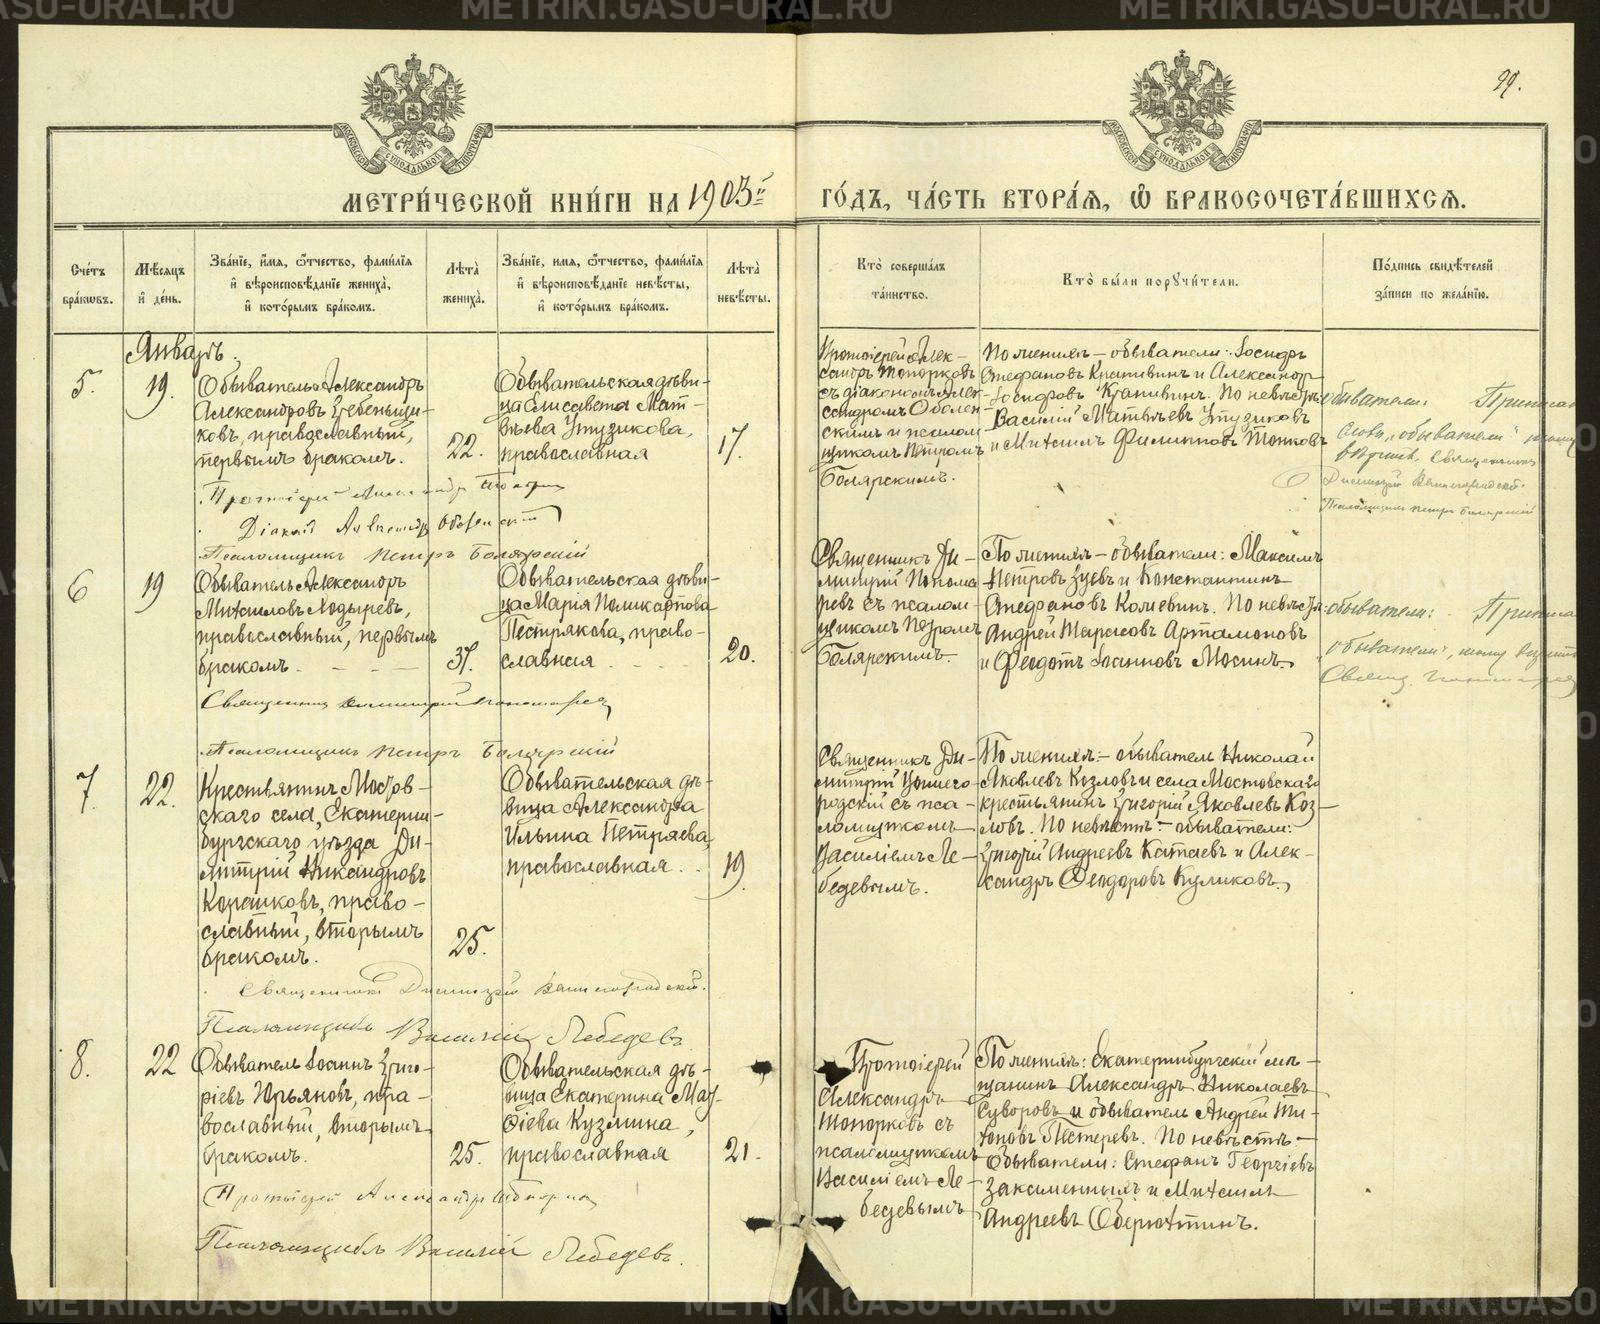 99.
МЕТРИ́ЧЕСКОЙ КНИ́ГИ НА 1903й ГО́ДЪ, ЧА́СТЬ ВТОРА́Я, Ѡ БРАКОСОЧЕТА́ВШИХСЯ.
Сче́тъ бра́кωвъ.
Мѣ́сяцъ и де́нь.
Зва́нїе, и́мя, ѻ́тчество, фами́лїя и вѣроисповѣ́данїе жениха̀, и кото́рымъ бра́комъ.
Лѣта̀ жениха̀.
Зва́нїе, имя, ѻ́тчество, фами́лїя и вѣроисповѣ́данїе невѣ́сты, и кото́рымъ бра́комъ.
Лѣта̀ невѣ́сты.
Кто̀ соверша́лъ та́инство.
Кто̀ бы́ли порꙋчи́тели.
По́дпись свидѣ́телей за́писи по жела́нїю.
Январь.
5.
19.
Обыватель Александръ
Александровъ Гребенщи-
ковъ, православный,
первымъ бракомъ.
22.
Обывательская дѣви-
ца Елисавета Мат-
вѣева Утузикова,
православная
17.
Протоіерей Алек-
сандръ Топорковъ
съ діакономъ Алек-
сандромъ Оболен-
скимъ и псалом-
щикомъ Петромъ
Болярскимъ.
По женихѣ – обыватели: Іосифъ
Стефановъ Крапивинъ и Александръ
Іосифовъ Крапивинъ. По невѣстѣ
Василій Матвѣевъ Утузиковъ
и Михаилъ Филипповъ Топковъ
обыватели: Приписан
слова „обыватели"
Священникъ
Псаломщикъ Петръ Болярскій
Протоіерей Александръ Топорковъ
Діаконъ Александръ Оболенскій
Псаломщикъ Петръ Болярскій
6
19
Обыватель Александръ
Михаиловъ Ходыревъ,
православный, первымъ
бракомъ
37.
Обывательская дѣви-
ца Марія Поликарпова
Пестрякова, право-
славная
20.
Священникъ Ди-
митрій Понома-
ревъ съ псалом-
щикомъ Петромъ
Болярскимъ.
По женихѣ – обыватели: Максимъ
Петровъ Зуевъ и Константинъ
Стефановъ Колевинъ. По невѣстѣ:
Андрей Тарасовъ Артамоновъ
и Феодотъ Іоанновъ Мосинъ.
обыватели: Приписа
обыватели",
Свящ. Пономаревъ
Священникъ Димитрій Пономаревъ
Псаломщикъ Петръ Болярскій
7.
22.
Крестьянинъ Мостов-
скаго села, Екатерин-
бургскаго уѣзда Ди-
митрій Никандровъ
Корашковъ, право-
славный, вторымъ
бракомъ.
25.
Обывательская дѣ-
вица Александра
Ильина Петряева,
православная
19.
Священникъ Ди-
митрій
съ пса-
ломщикомъ
Василіемъ Ле-
бедевымъ.
По женихѣ – обыватель Николай
Яковлевъ Козловъ и села Мостовскаго
крестьянинъ Григорій Яковлевъ Коз-
ловъ. По невѣстѣ – обыватели:
Григорій Андреевъ Катаевъ и Алек-
сандръ Феодоровъ Куликовъ.
Священникъ Димитрій
Псаломщикъ Василій Лебедевъ
8.
22
Обыватель Іоаннъ Григо-
ріевъ Юрьяновъ, пра-
вославный, вторымъ
бракомъ.
25.
Обывательская дѣ-
вица Екатерина Мат-
фіева Кузмина,
православная
21.
Протоіерей
Александръ
Топорковъ съ
псаломщикомъ
Василіемъ Ле-
бедевымъ
По женихѣ: Екатеринбургскій мѣ-
щанинъ Александръ Николаевъ
Суворовъ и обыватель Андрей Ти-
хоновъ Пестеревъ. По невѣстѣ –
обыватели: Стефанъ Георгіевъ
Закаменныхъ и Михаилъ
Андреевъ Оберюхтинъ.
Протоіерей Александръ Топорковъ
Псаломщикъ Василій Лебедевъ.
METRIKI.GASU-URAL.RU